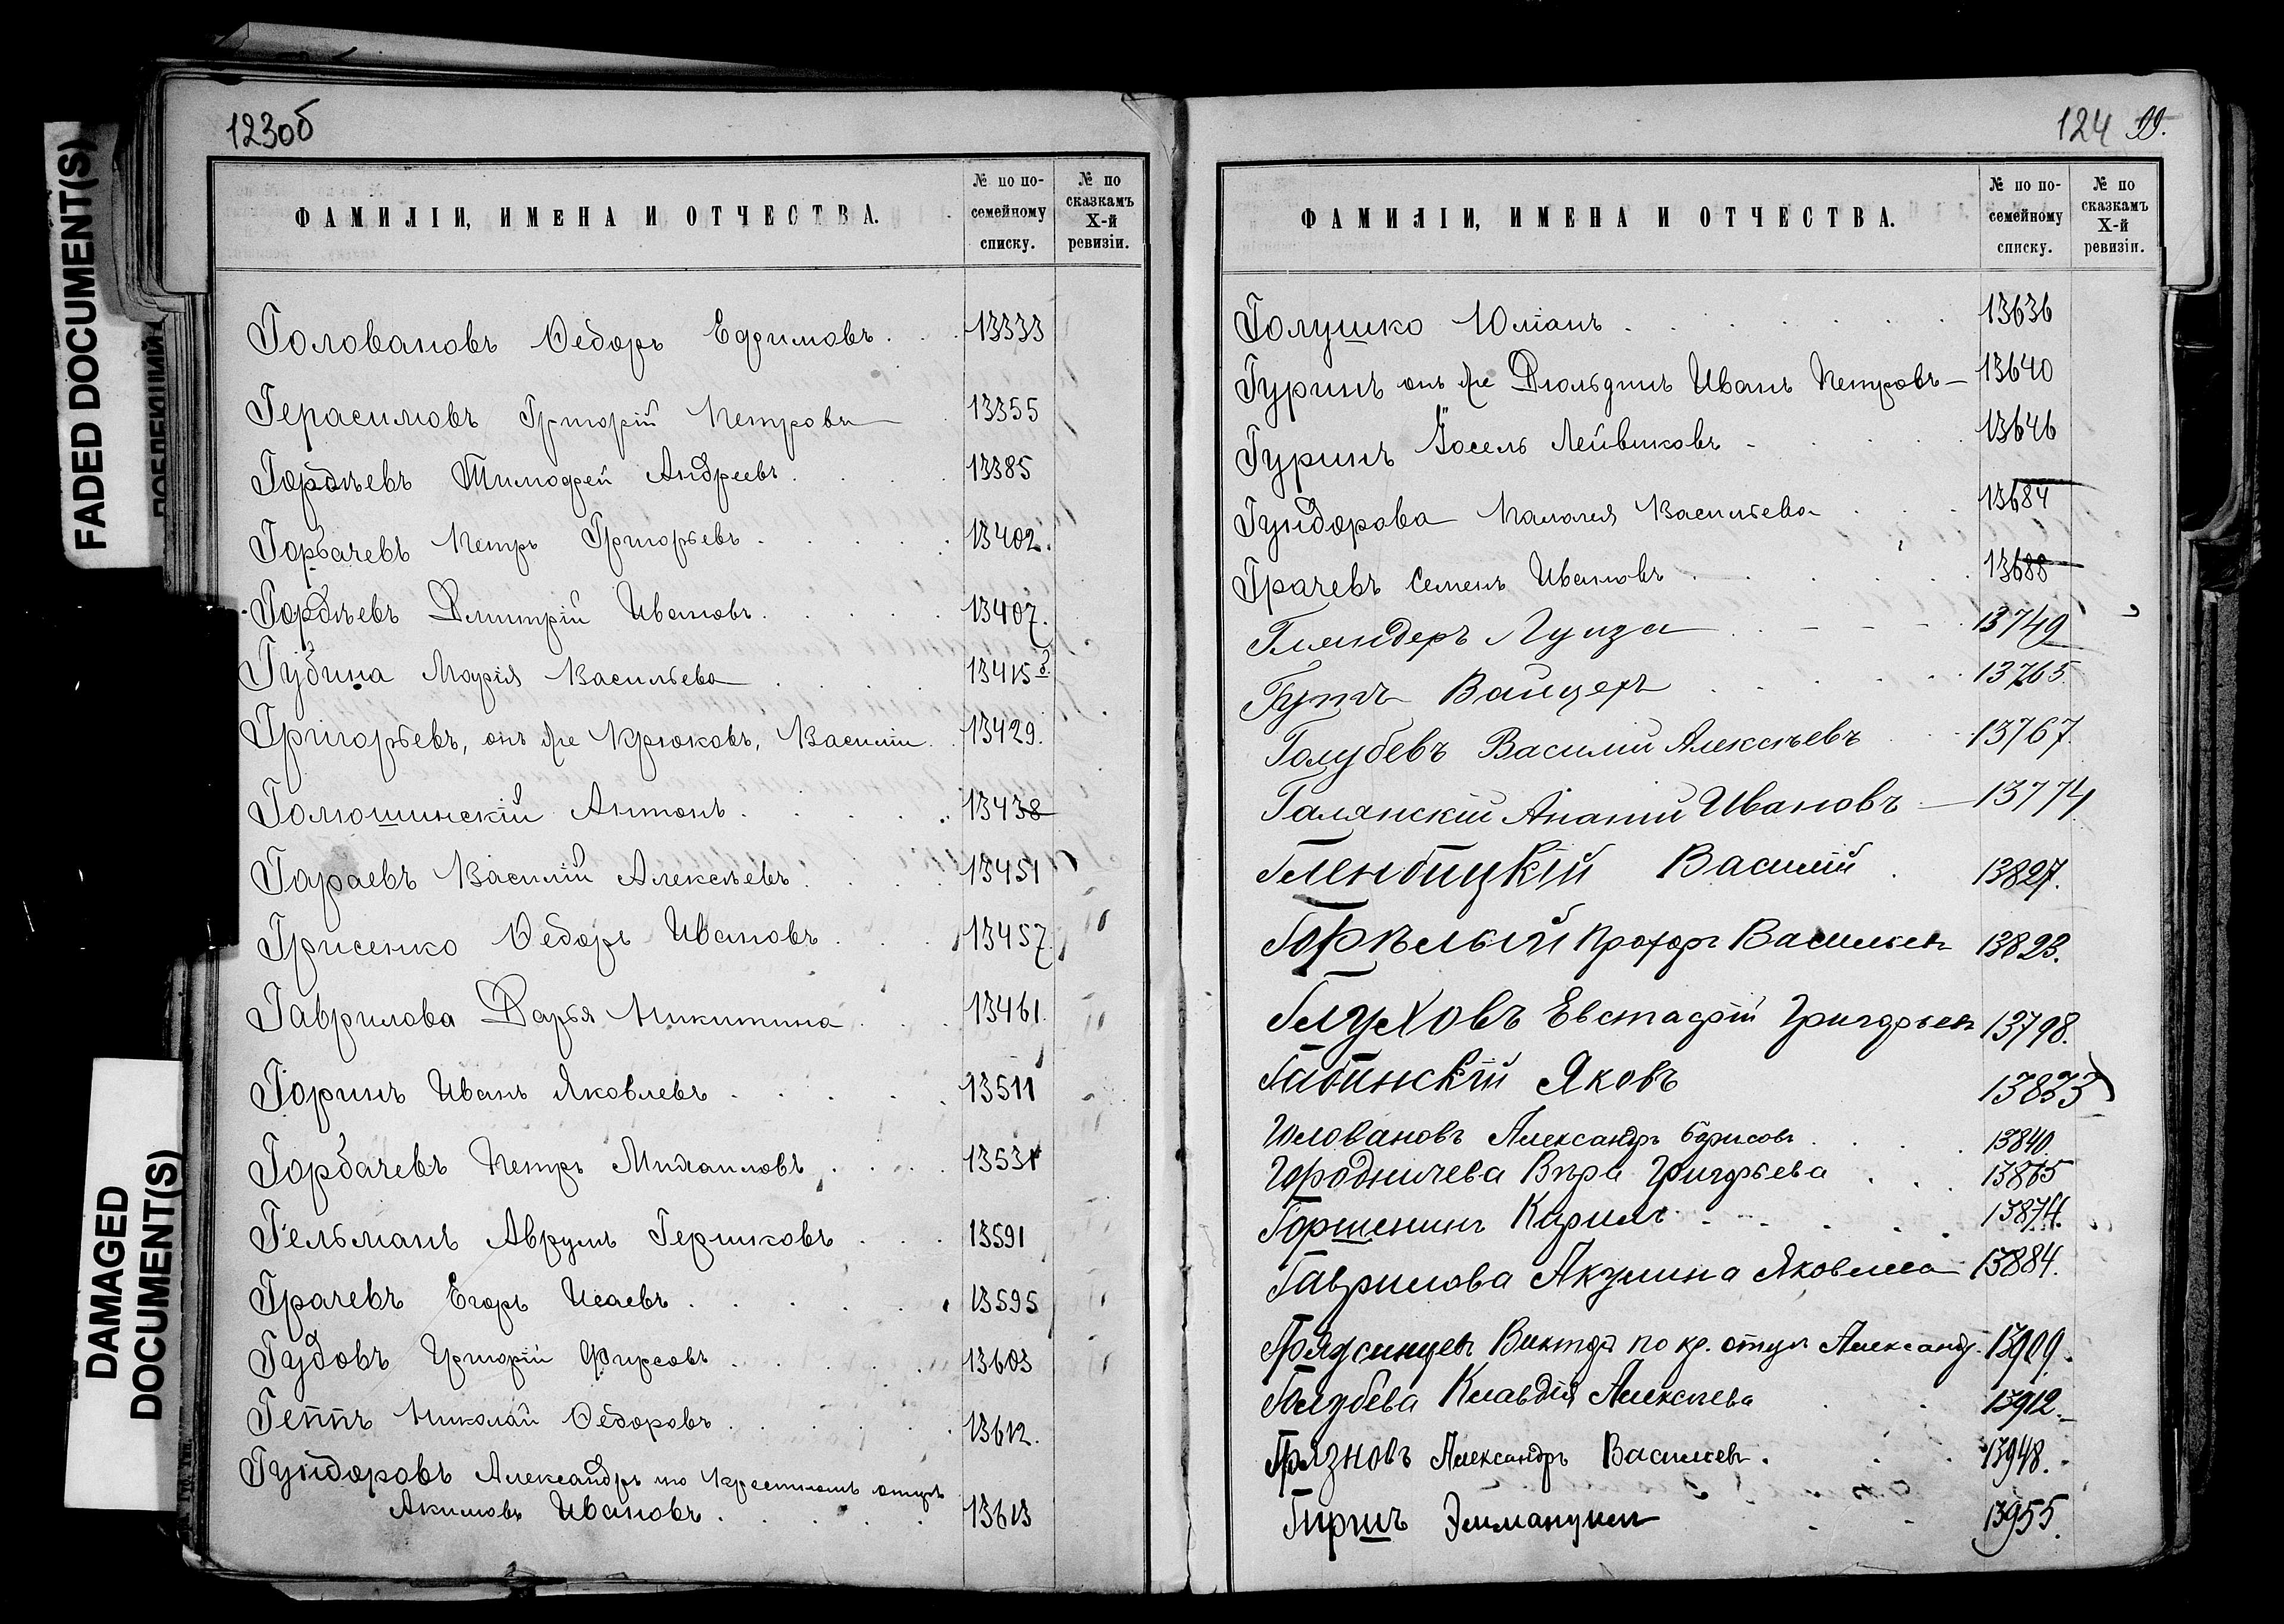 123об
ФАМИЛІИ, ИМЕНА И ОТЧЕСТВА.
№ по по-
семейному
списку.
№ по
сказкамъ
X-й
ревизіи.
Головановъ Ѳедоръ Ефимовъ. 13333
Герасимовъ Григорій Петровъ 13355
Гордѣевъ Тимофей Андреевъ. 13385
Горбачевъ Петръ Григорьевъ. 13402.
Гордѣевъ Дмитрій Ивановъ. 13407.
Губина Марія Васильева 13415
Григорьевъ, онъ же Крюковъ, Василій. 13429.
Голюшинскій Антонъ. 13438
Гараевъ Василій Алексѣевъ. 13451
Грисенко Ѳедоръ Ивановъ. 13457
Гаврилова Дарья Никитина 13461.
Горинъ Иванъ Яковлевъ. 13511
Горбачевъ Петръ Михаиловъ. 13531
Гельманъ Аврумъ Гершковъ 13591
Грачевъ Егоръ Исаевъ. 13595
Гудовъ Григорій Фирсовъ. 13603
Геппъ Николай Ѳедоровъ. 13612.
Гундоровъ Александръ по крестномъ отцѣ
Акимовъ Ивановъ. 13613
124 99.
ФАМИЛІИ, ИМЕНА И ОТЧЕСТВА.
№ по по-
семейному
списку.
№ по
сказкамъ
X-й
ревизіи.
Голушко Юліанъ. 13636
Гуринъ онъ же Дюльдинъ Иванъ Петровъ 13640
Гуринъ Іосель Лейвиковъ 13646
Гундорова Палагея Васильева 13684
Грачевъ Семенъ Ивановъ 13688
Гляндеръ Луиза 13749
Гутъ Валцеръ 13765.
Голубевъ Василій Алексѣевъ 13767.
Галянскій Ананій Ивановъ 13774.
Глембицкій Василій. 13827.
Горѣлый Прохоръ Васильевъ 13823.
Глуховъ Евстафій Григорьевъ 13798.
Габинскій Яковъ 13833
Головановъ Александръ Борисовъ. 13840.
Городничева Вѣра Григорьева 13865
Горшенинъ Кирилъ 13874.
Гаврилова Акулина Яковлева 13884.
Виктор по кр. отцу Александр. 13909.
Голубева Клавдія Алексѣева 13912.
Грязновъ Александръ Васильевъ. 13948.
Гиршъ Эммануил 13955.
FADED DOCUMENT(S)
DAMAGED
DOCUMENT(S)